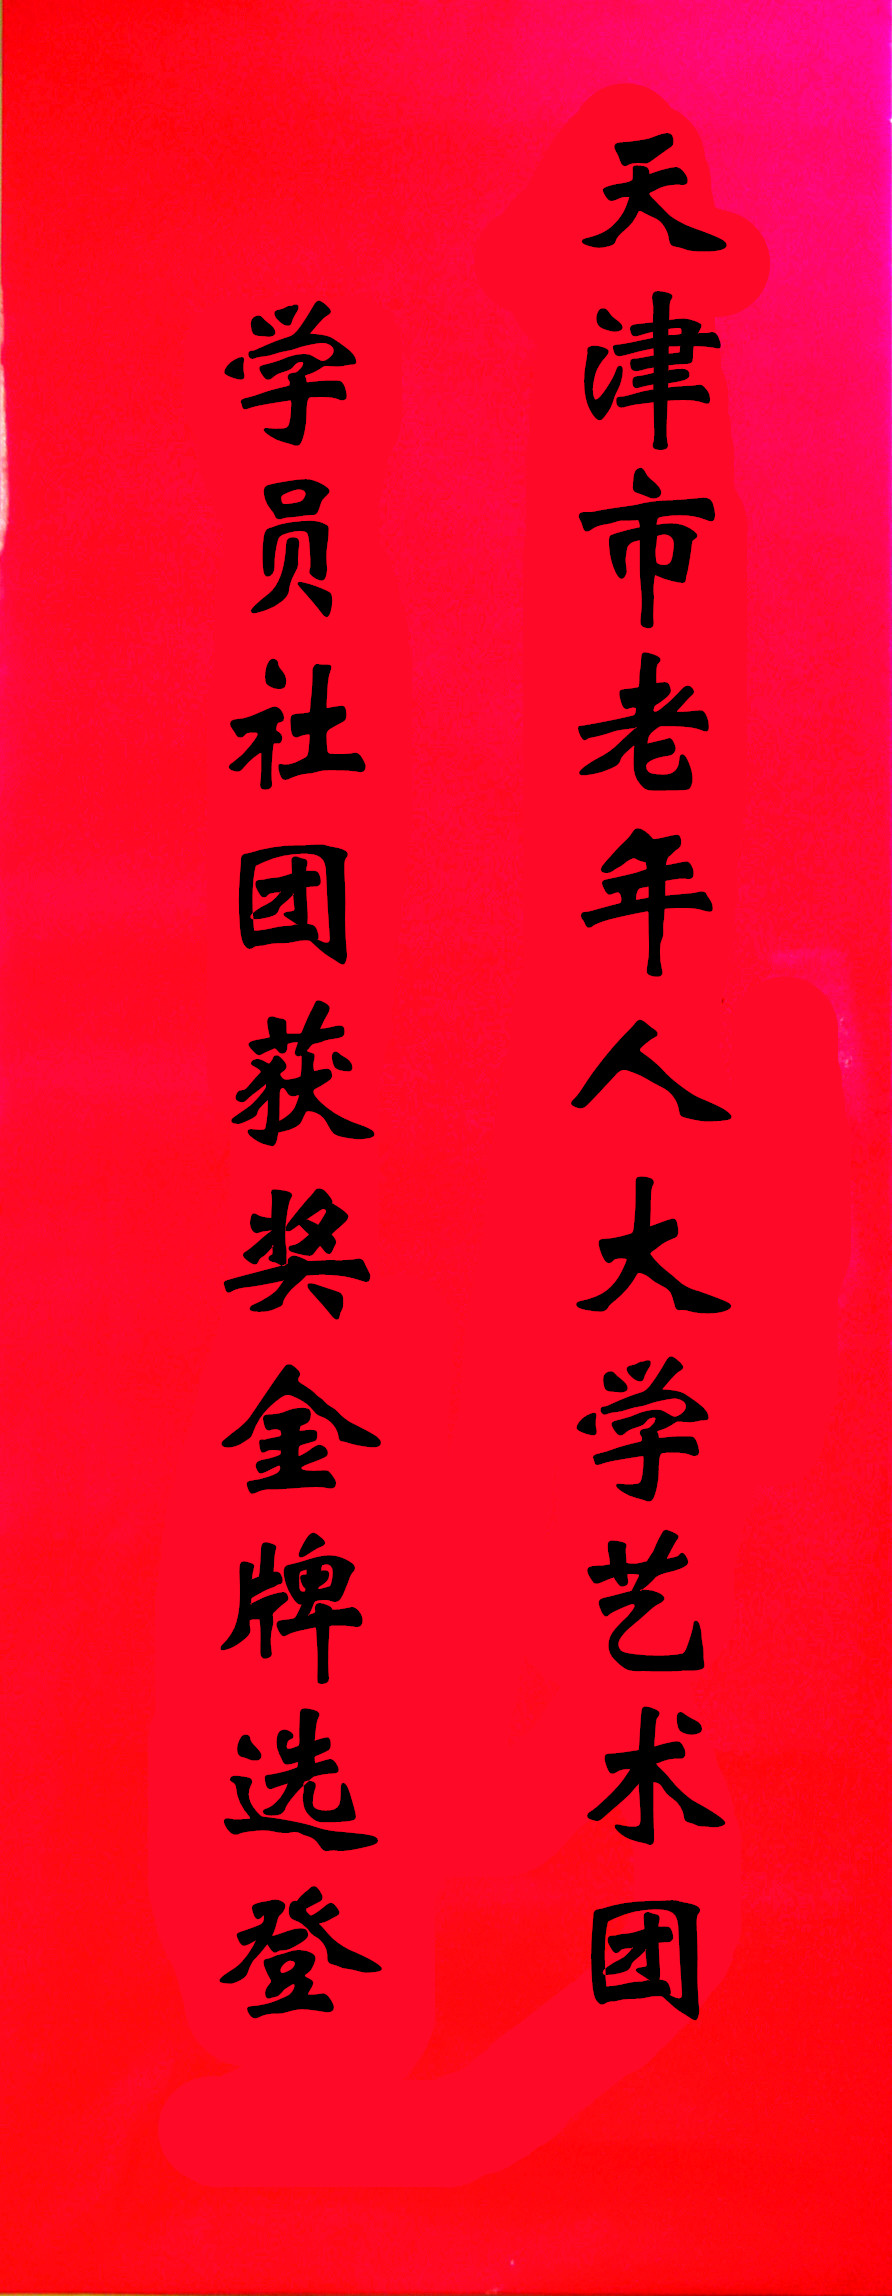 天津市老年人大学艺术团
学员社团获奖金牌选登